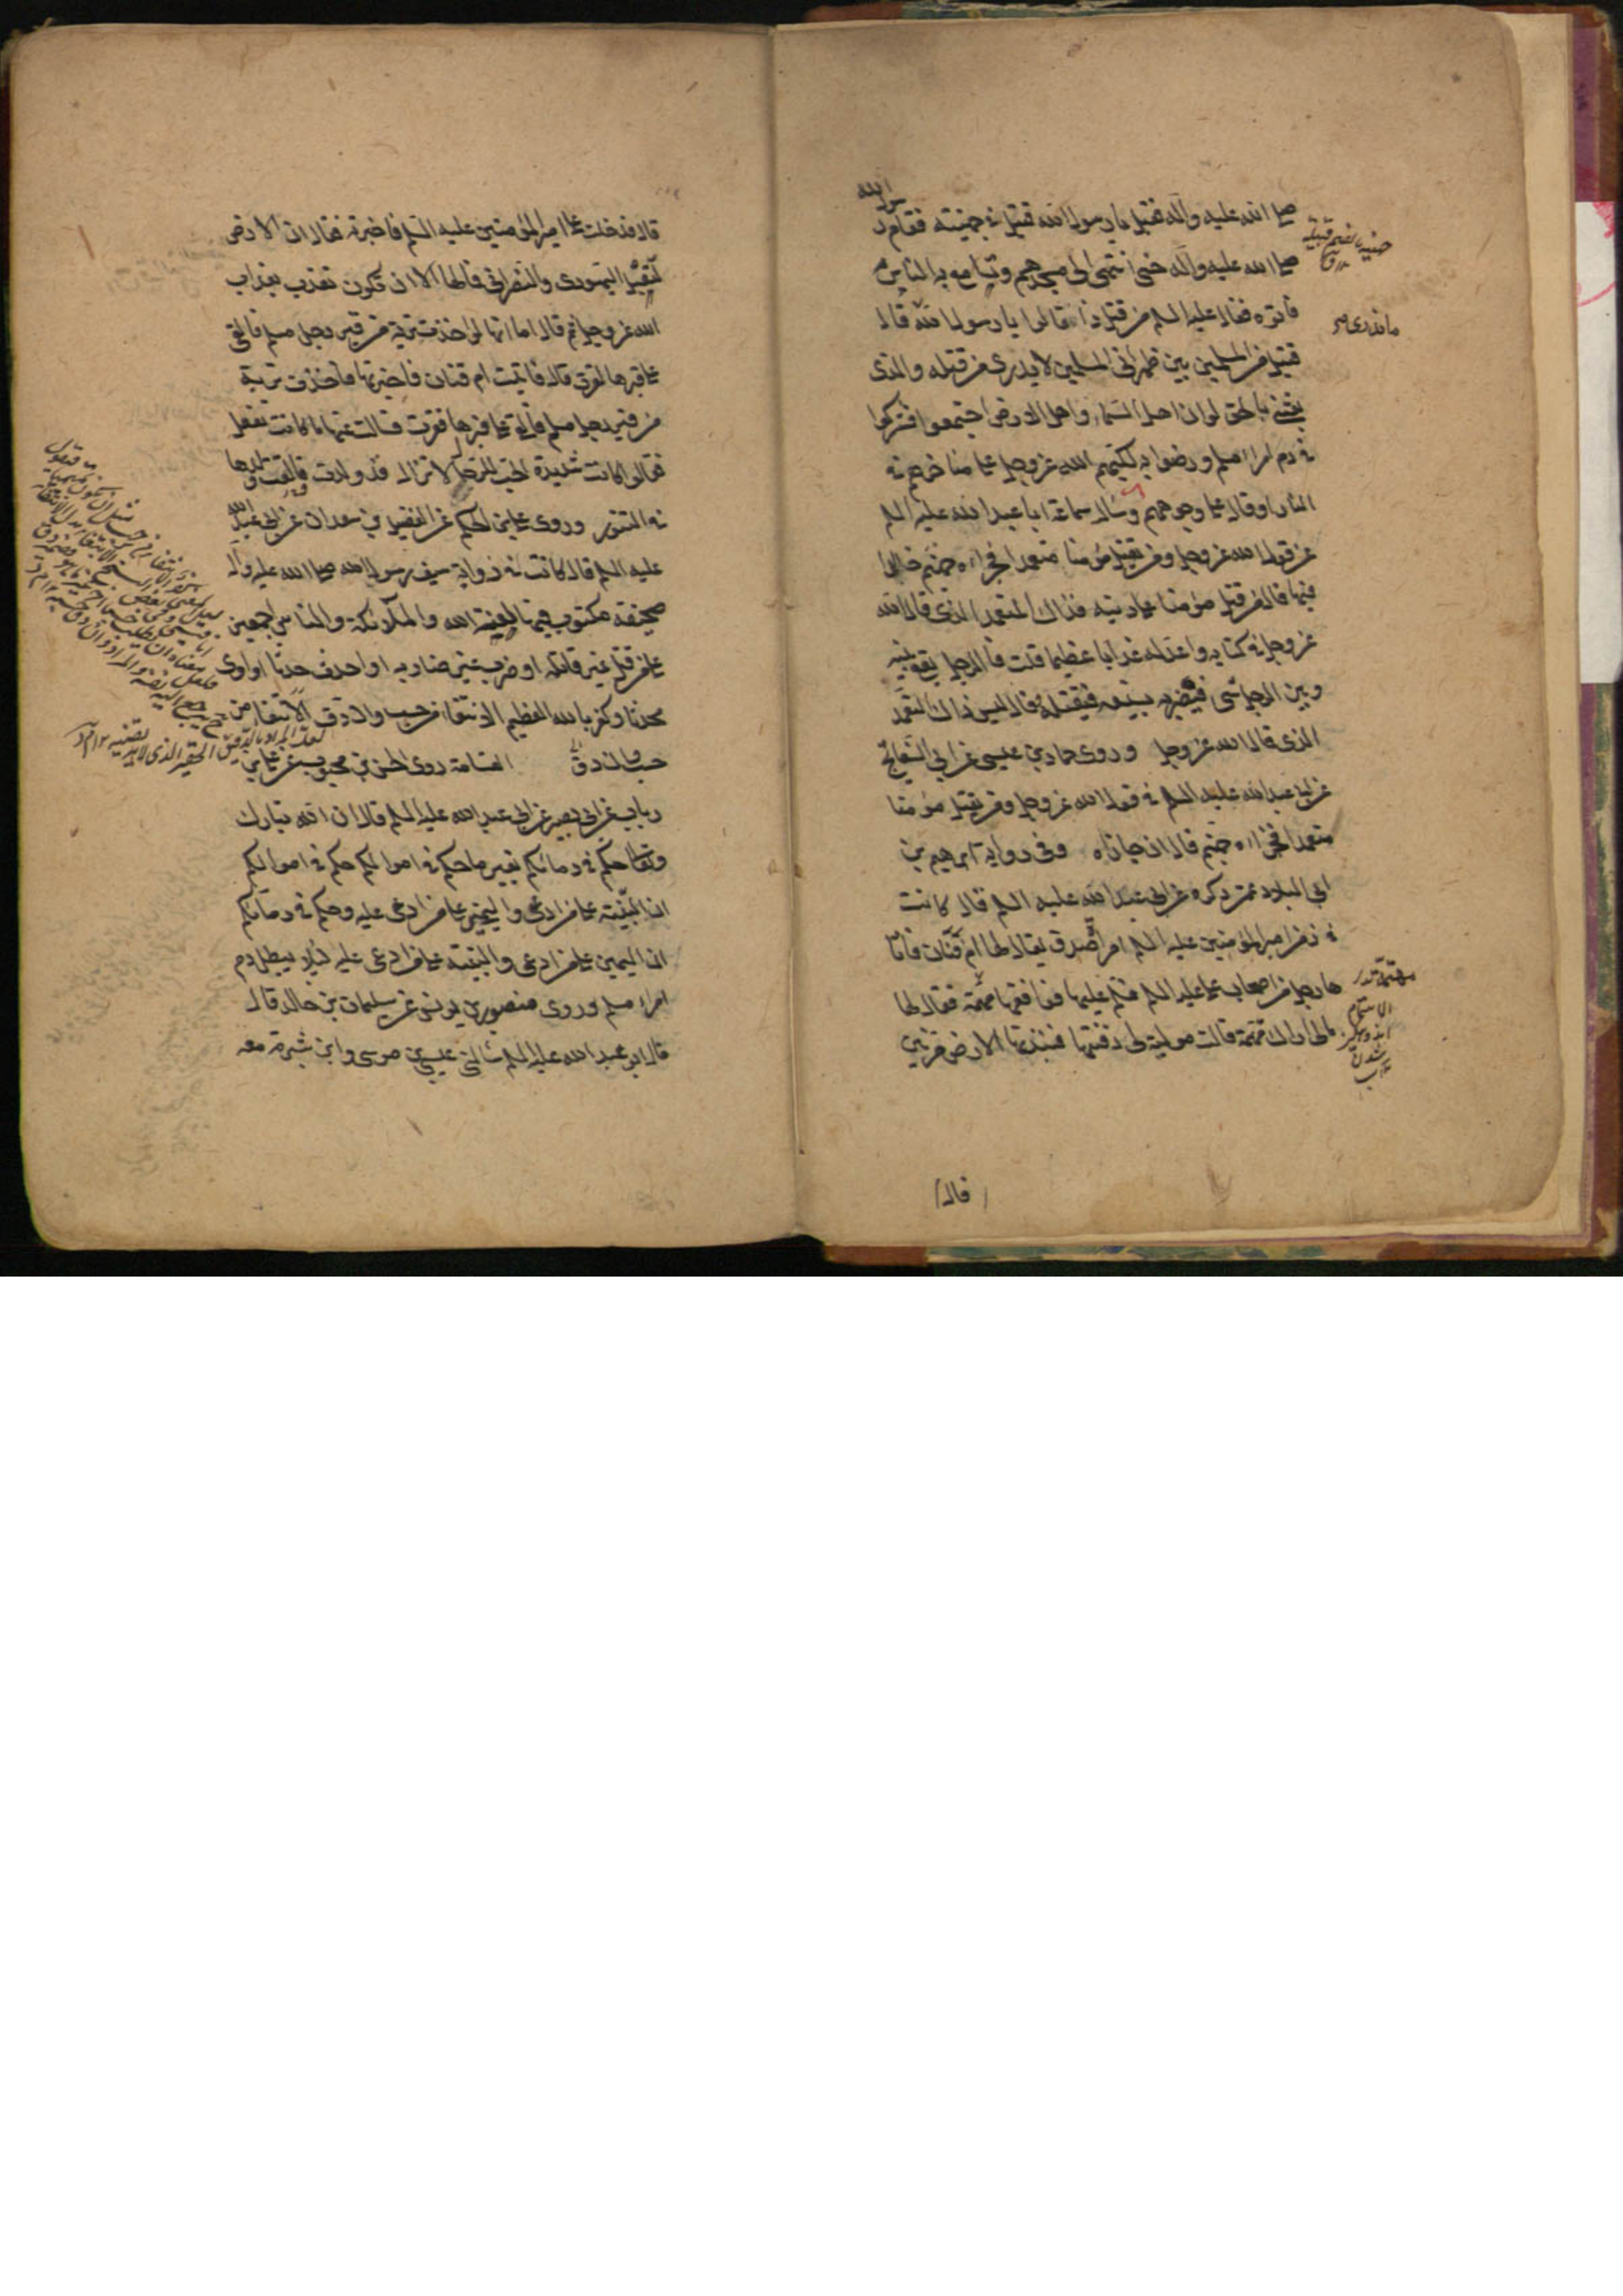 صلى الله عليه وآله فقيل يا رسول الله قتيل في جهينة فقام رسول الله
صلى الله عليه وآله حتى انتهى الى مسجدهم وتسامع به الناس
فأتوه فقال عليه السلم من قتل ذا قالوا يا رسول الله ما ندرى قال
قتيل من المسلمين بين ظهرانى المسلمين لا يدرى من قتله والذى
بعثنى بالحق لو ان اهل السماء واهل الارض اجتمعوا فشركوا
في دم امرء مسلم ورضوا به لكبهم الله عز وجل على مناخرهم في
النار او قال على وجوههم وسأل سماعة ابا عبد الله عليه السلم
عن قول الله عز وجل ومن يقتل مؤمنا متعمدا فجزاؤه جهنم خالدا
فيها قال من قتل مؤمنا على دينه فذاك المتعمد الذى قال الله
عز وجل في كتابه واعد له عذابا عظيما قلت فالرجل يقع بينه
وبين الرجل شى فيضربه بسيفه فيقتله فقال ليس ذاك المتعمد
الذى قال الله عز وجل وروى حماد بن عيسى عن ابي السفاتج
عن ابي عبد الله عليه السلم في قول الله عز وجل ومن يقتل مؤمنا
متعمدا فجزاؤه جهنم قال ان جازاه وفى رواية ابرهيم بن
ابي البلاد عمن ذكره عن ابي عبد الله عليه السلم قال كانت
في زمن امير المؤمنين عليه السلم امرأة صدق يقال لها ام قنان فأتا
ها رجل من اصحاب على عليه السلم فسلم عليها فوافقها مهتمة فقال لها
مالى اراك مهتمة قالت مولاة لى دفنتها فنبذتها الارض مرتين
قال
قال فدخلت على امير المؤمنين عليه السلم فاخبرته فقال ان الارض
لتقبل اليهودى والنصرانى فما لها الا ان تكون تعذب بعذاب
الله عز وجل ثم قال اما انها لو اخذت تربة من قبر رجل مسلم فالقى
على قبرها لقرت قال فاتيت ام قنان فاخبرتها فاخذت تربة
من قبر رجل مسلم فالقى على قبرها فقرت فسالت عنها ما كانت تفعل
فقالوا كانت شديدة الحب للرجال لا تزال قد ولدت والقت ولدها
في التنور وروى على بن الحكم عن الفضيل بن سعدان عن ابي عبد الله
عليه السلم قال كانت في ذوابة سيف رسول الله صلى الله عليه وآله
صحيفة مكتوب فيها لعنة الله والملائكة والناس اجمعين
على من قتل غير قاتله او ضرب غير ضاربه او احدث حدثا او اوى
محدثا وكفر بالله العظيم الانتفاء من حسب وان دق الانتفاء من
حسب وان دق القسامة روى الحسن بن محبوب عن على بن
رباب عن ابي بصير عن ابي عبد الله عليه السلم قال ان الله تبارك
وتعالى حكم في دمائكم بغير ما حكم في اموالكم حكم في اموالكم
ان البينة على من ادعى واليمين على من ادعى عليه وحكم في دمائكم
ان اليمين على من ادعى والبينة على من ادعى عليه لئلا يبطل دم
امرء مسلم وروى منصور بن يونس عن سليمان بن خالد قال
قال ابو عبد الله عليه السلم سألنى عيسى بن موسى وابن شبرمة معه